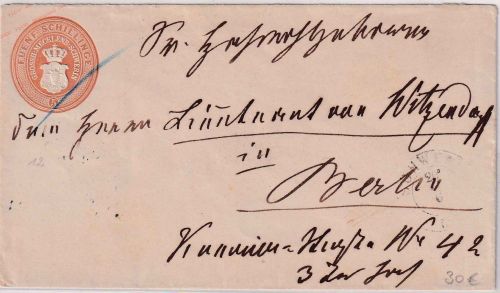 FUENF SCHILLINGE
GROSSH. MECKLENB. SCHWERIN
Sr. Hochwohlgeboren
Dem Herrn Lieutenant von Witzendorff
12
in
Berlin
Straße No 42
3 Hof
30€